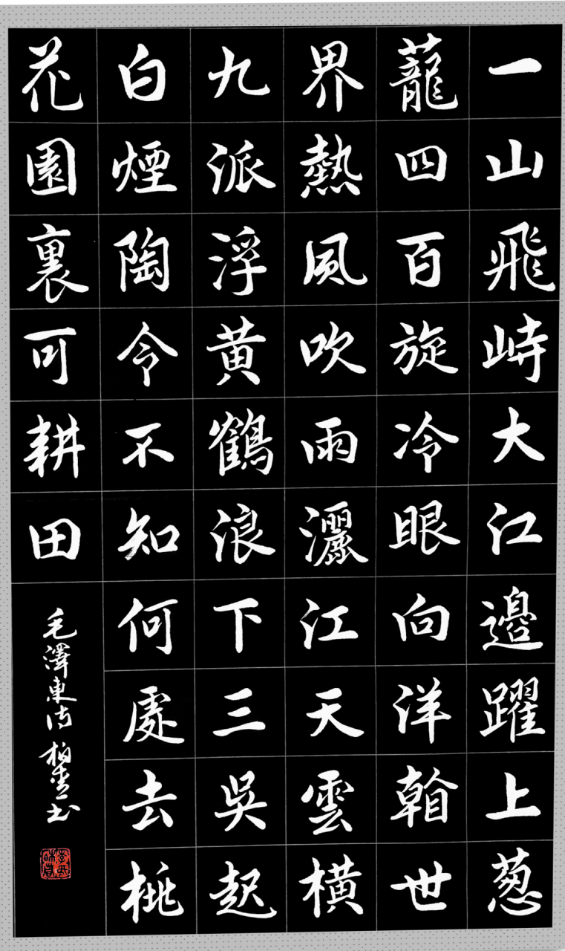 一山飛峙大江邊躍上葱
蘢四百旋冷眼向洋看世
界熱風吹雨灑江天雲橫
九派浮黃鶴浪下三吳起
白煙陶令不知何處去桃
花園裏可耕田
毛澤東詩